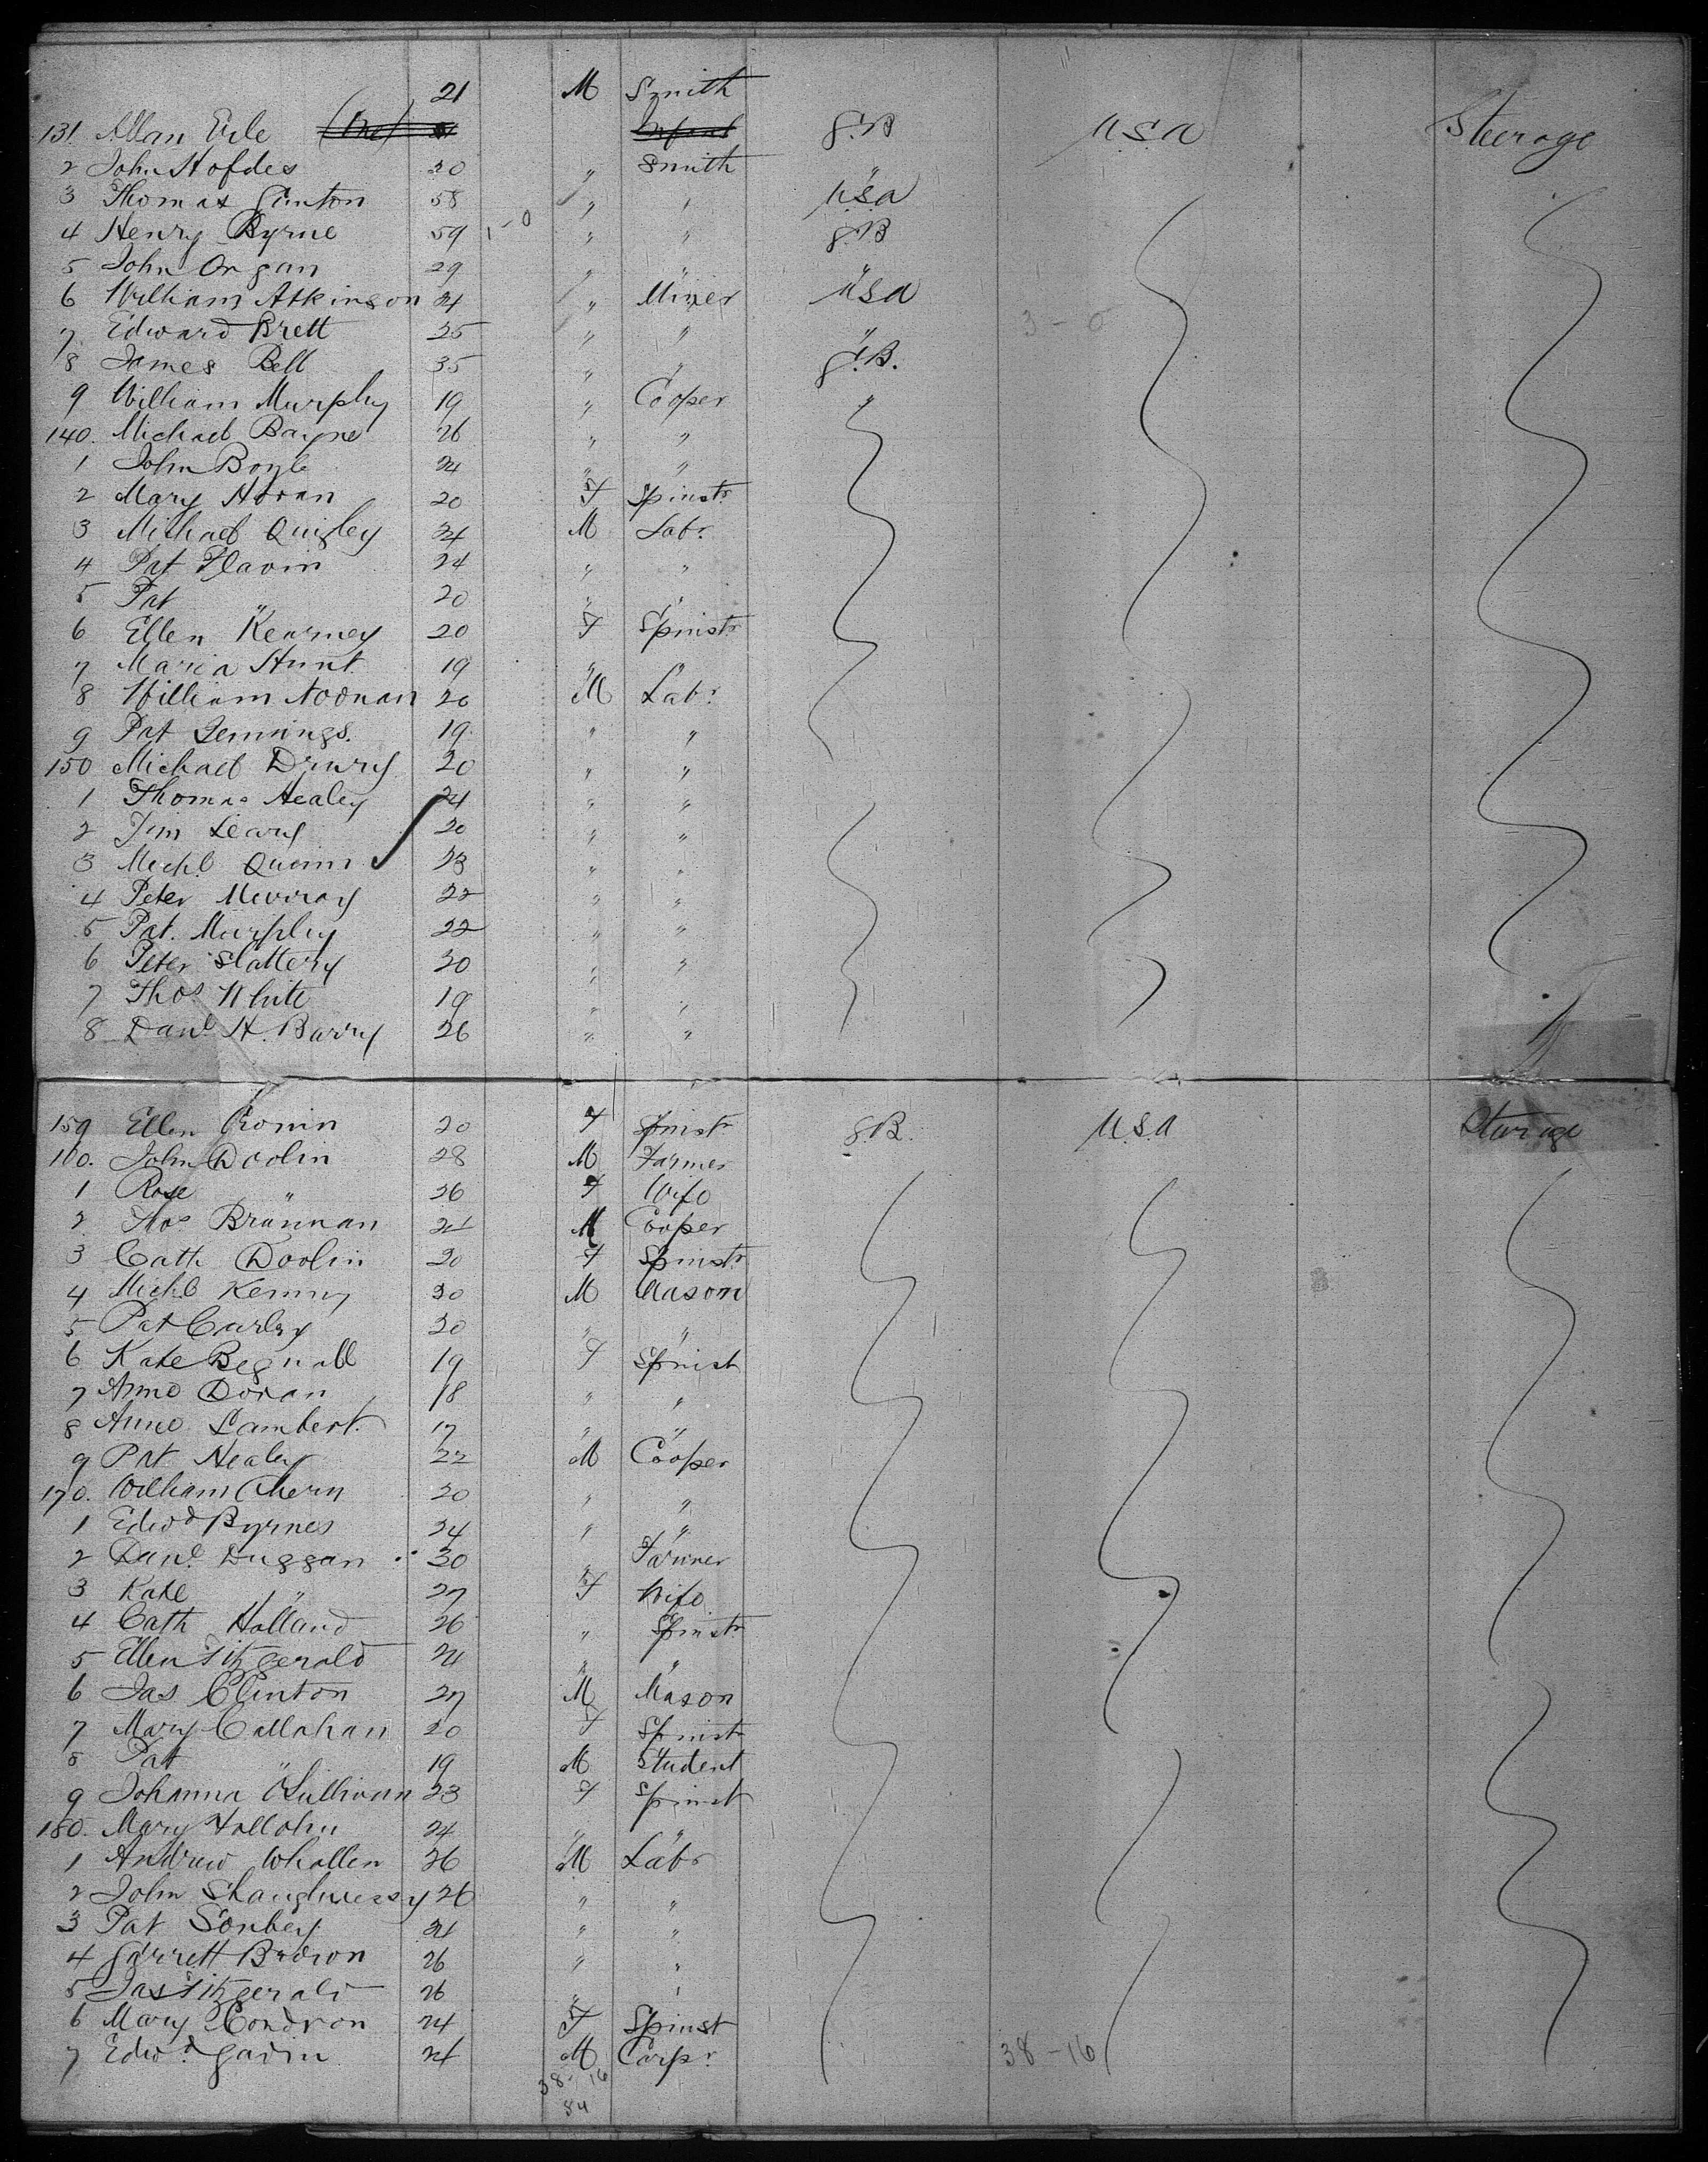 21 M Smith
131. Allan Erle G.B U.S.A Steerage
2 John Hofdes 30 " Smith "
3 Thomas Ginton 58 " " U.S.A
4 Henry Byrne 59 1-0 " " G.B
5 John Organ 29 " " "
6 William Atkinson 24 " Miner U.S.A
7 Edward Brett 25 " " " 3-0
8 James Bell 35 " " G.B.
9 William Murphy 19 " Cooper "
140. Michael Bayne 26 " "
1 John Boyle 24 " "
2 Mary Horan 20 F Spinstr
3 Michael Quigley 24 M Labr
4 Pat Flavin 24 " "
5 Pat " 20 " "
6 Ellen Kearney 20 F Spinstr
7 Maria Hunt 19 " "
8 William Noonan 20 M Labr
9 Pat Jennings. 19 " "
150 Michael Drury 20 " "
1 Thomas Healey 24 " "
2 Jim Leary 20 " "
3 Michl Quinn 23 " "
4 Peter Murray 22 " "
5 Pat. Murphy 22 " "
6 Peter Slattery 30 " "
7 Thos White 19 " "
8 Danl H. Barry 26 " "
159 Ellen Cronin 20 F Spinstr G.B. U.S.A Steerage
160. John Doolin 28 M Farmer
1 Rose " 26 F Wife
2 Thos Brannan 21 M Cooper
3 Cath Doolin 20 F Spinstr
4 Michl Kenny 30 M Mason
5 Pat Curley 20 " "
6 Kate Begnall 19 F Spinst
7 Anne Doran 18 " "
8 Anne Lambert 17 " "
9 Pat Healey 22 M Cooper
170. William Ahern 20 " "
1 Edwd Byrnes 24 " "
2 Danl Duggan 30 " Farmer
3 Kate " 27 F Wife
4 Cath Holland 26 " Spinstr
5 Ellen Fitzgerald 24 " "
6 Jas Clinton 27 M Mason
7 Mary Callahan 20 F Spinst
8 Pat " 19 M Student
9 Johanna O'Sullivan 23 F Spinst
180. Mary Hallohn 24 " "
1 Andrew Whallen 26 M Labr
2 John Shaughnessy 26 " "
3 Pat Sonbey 24 " "
4 Garrett Brown 26 " "
5 Jas Fitzgerald 26 " "
6 Mary Condron 24 F Spinst
7 Edwd Gavin 24 M Carpr 38-16
38-16
54